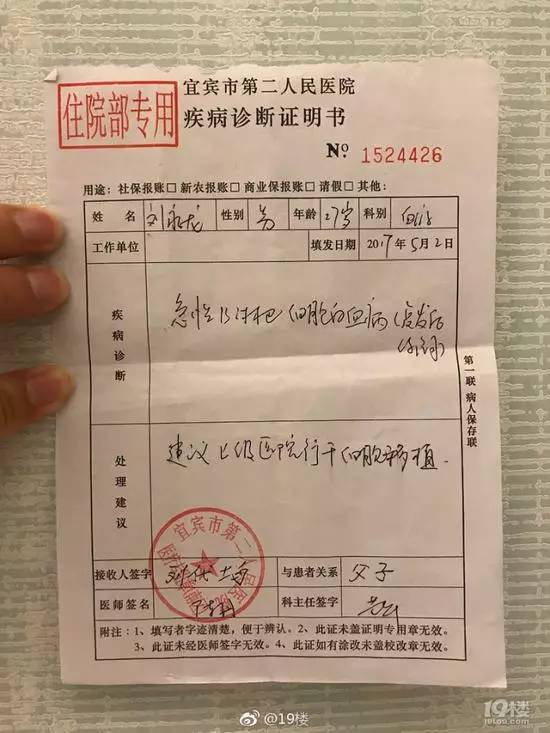 住院部专用
宜宾市第二人民医院
疾病诊断证明书
№ 1524426
用途：社保报账□ 新农报账□ 商业保报账□ 请假□ 其他：
姓名 刘永龙 性别 男 年龄 27岁 科别
工作单位 填发日期 2017年5月2日
疾病诊断
急性B淋巴细胞白血病
处理建议
建议上级医院行干细胞移植.
第一联 病人保存联
宜宾市第二人民医院
接收人签字 与患者关系 父子
医师签名 科主任签字
附注：1、填写者字迹清楚，便于辨认。2、此证未盖证明专用章无效。
3、此证未经医师签字无效。4、此证如有涂改未盖校改章无效。
@19楼
19楼
19lou.com